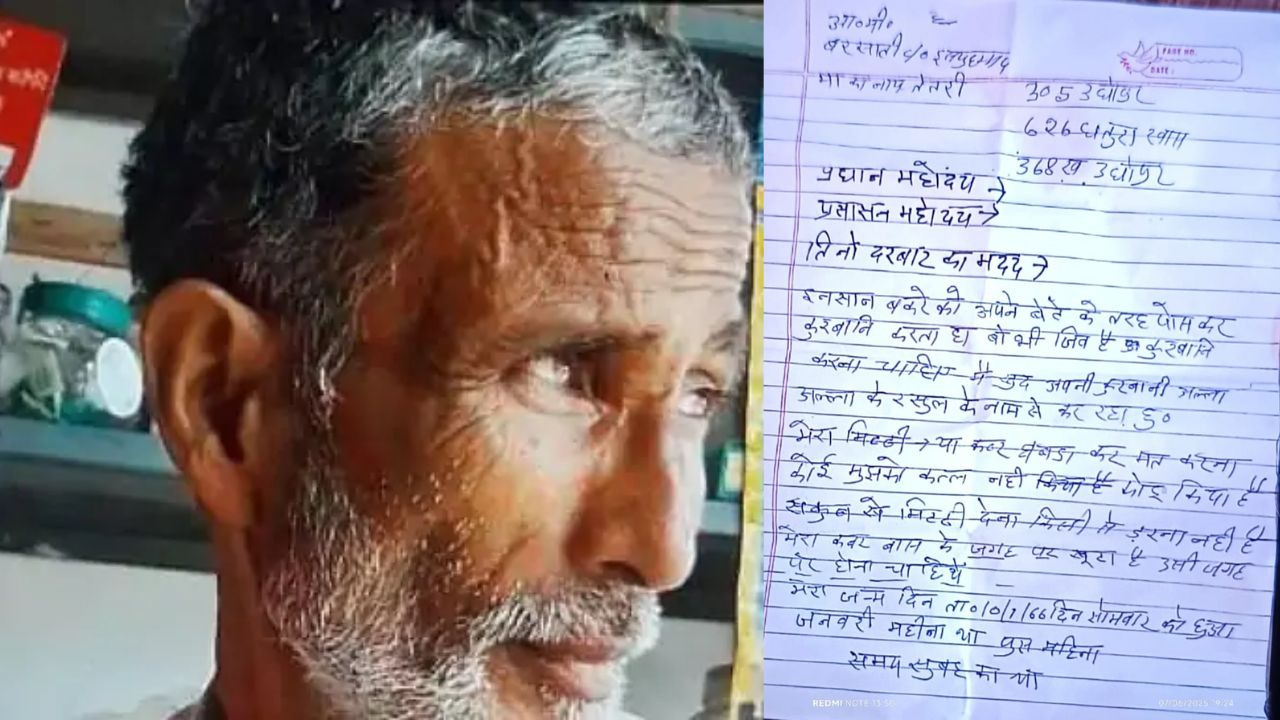 बरसाती
मा का नाम तेतरी
PAGE NO.
DATE:
305 उधोपुर
626 धतुरा खास
368ख उधोपुर
प्रधान महोदय →
प्रसासन महोदय →
तिनो दरबार का मदद →
इनसान बकरे को अपने बेटे के तरह पोस कर
कुरबानि करता है वो भी जिव है कुरबानि
करना चाहिए मै खुद अपनी कुरबानी अल्ला
अल्ला के रसुल के नाम से कर रहा हु०
मेरा मिटटी → या कबर घबड़ा कर मत करना
कोई मुझको कत्ल नही किया है
सकुन से मिटटी देना किसी से डरना नही है
मेरा कबर बास के जगह पर खूटा है उसी जगह
पर होना चाहिये
मेरा जन्म दिन सोमवार को हुआ
जनवरी महीना था पुस महिना
समय सुबह का था
REDMI NOTE 13 5G
07/06/2025 19:24